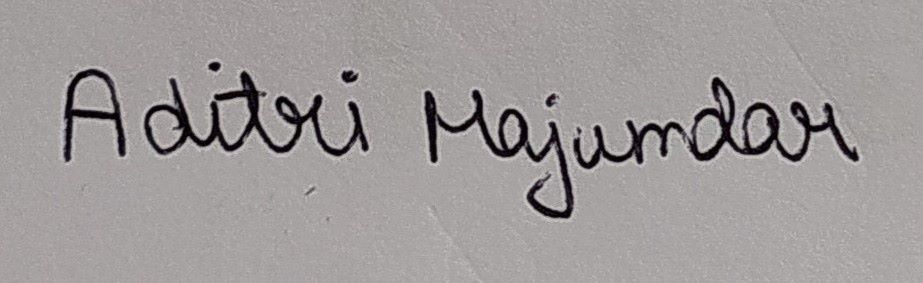 Aditri Majumdar